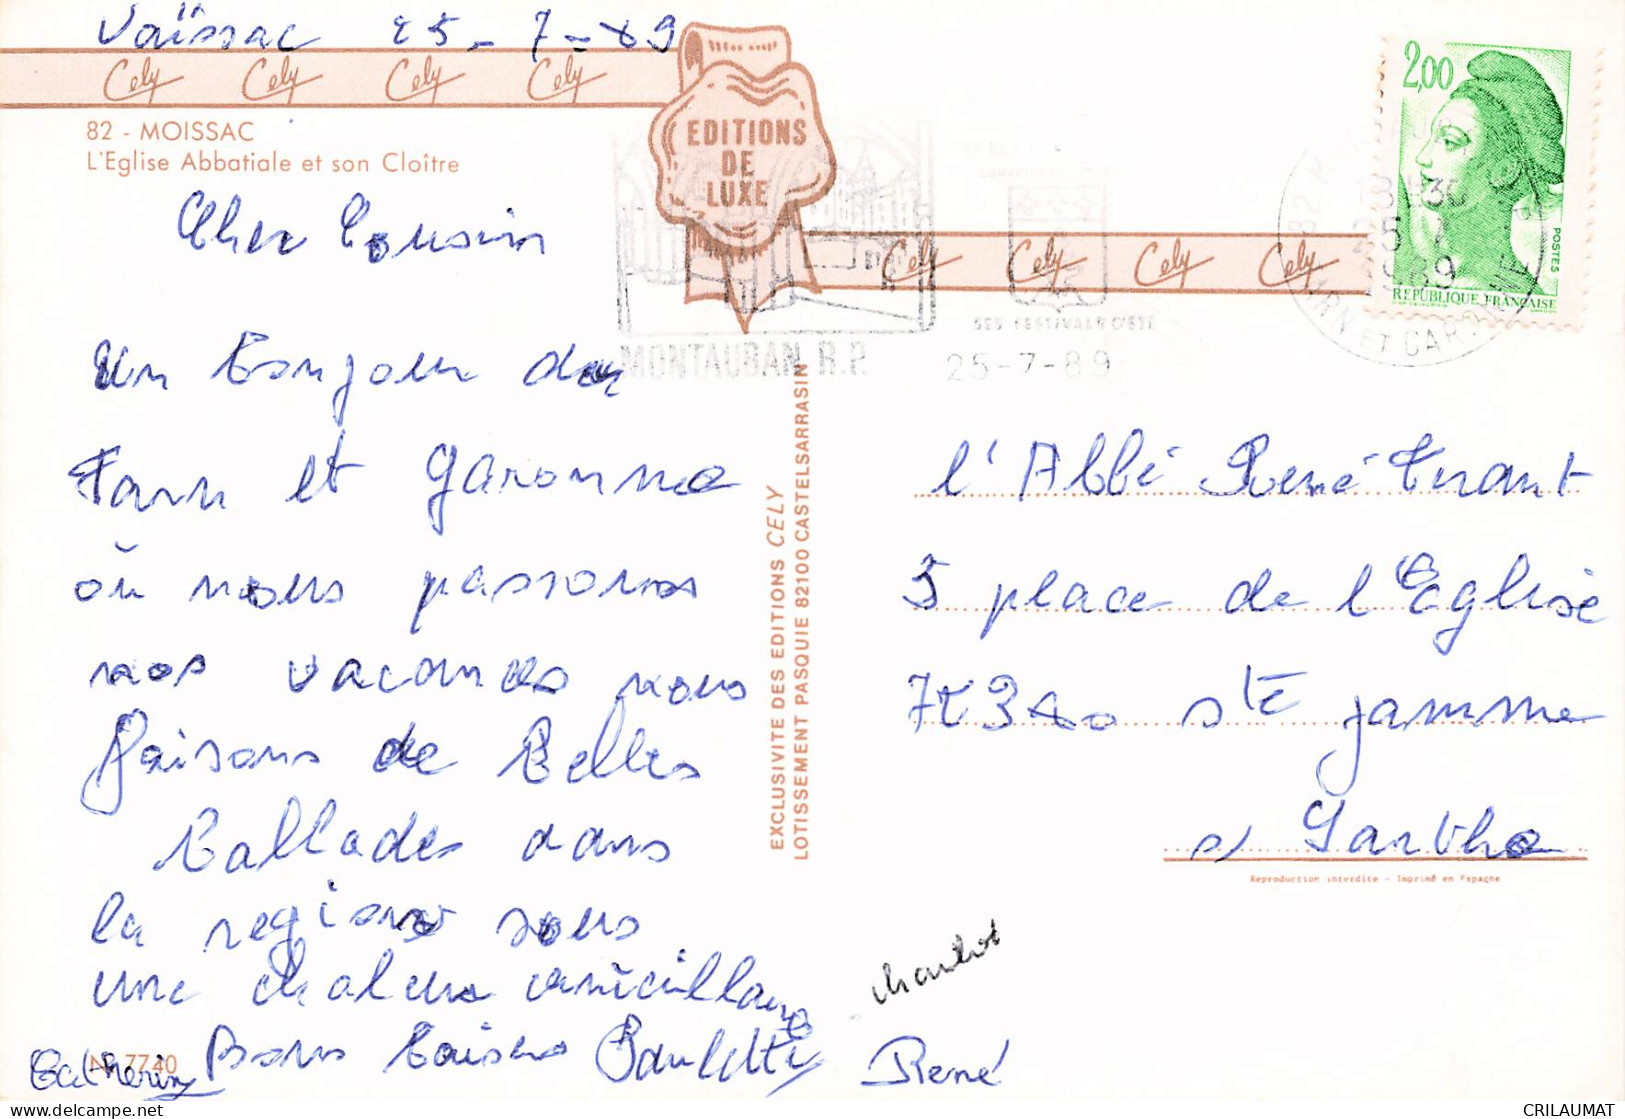 Vaïssac 25-7-89
Cely Cely Cely Cely
82 - MOISSAC
L'Eglise Abbatiale et son Cloître
EDITIONS
DE
LUXE
Cely Cely Cely Cely
2,00
POSTES
REPUBLIQUE FRANÇAISE
MONTAUBAN R.P.
DES FESTIVALS D'ETE
25-7-89
TARN ET GARONNE
Cher Cousin
Un bonjour du
Tarn et Garonne
où nous passons
nos vacances nous
faisons de belles
ballades dans
la region sous
une chaleur
Bons baisers Paulette
Catherine
René
N° 7740
EXCLUSIVITE DES EDITIONS CELY
LOTISSSEMENT PASQUIE 82100 CASTELSARRASIN
l'Abbé René
5 place de l'Eglise
Ste Jamme
s/ Sarthe
Reproduction interdite - Imprimé en Espagne
CRILAUMAT